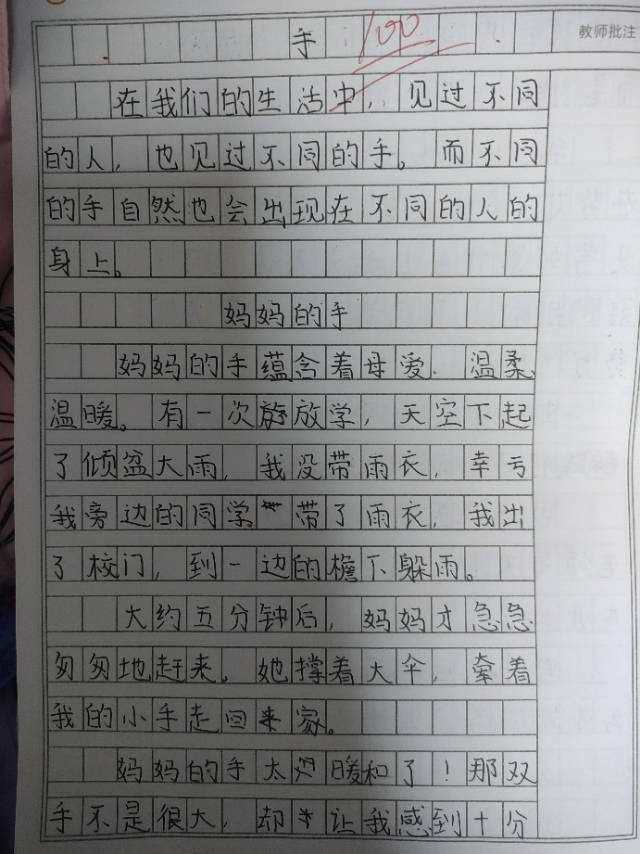 手 100 教师批注
在我们的生活中，见过不同
的人，也见过不同的手。而不同
的手自然也会出现在不同的人的
身上。
妈妈的手
妈妈的手蕴含着母爱、温柔、
温暖。有一次放学，天空下起
了倾盆大雨，我没带雨衣，幸亏
我旁边的同学带了雨衣，我出
了校门，到一边的檐下躲雨。
大约五分钟后，妈妈才急急
匆匆地赶来。她撑着大伞，牵着
我的小手走回家。
妈妈的手太暖和了！那双
手不是很大，却让我感到十分